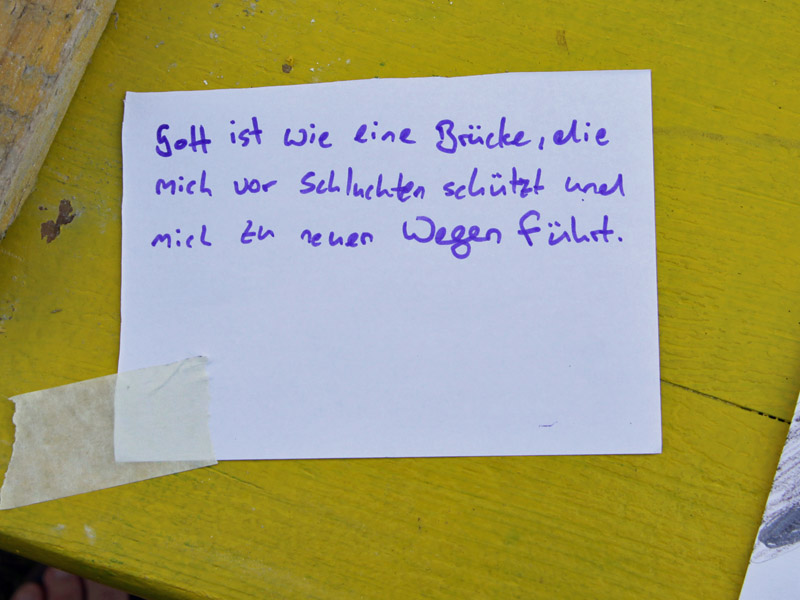 Gott ist wie eine Brücke, die
mich vor Schluchten schützt und
mich zu neuen Wegen führt.